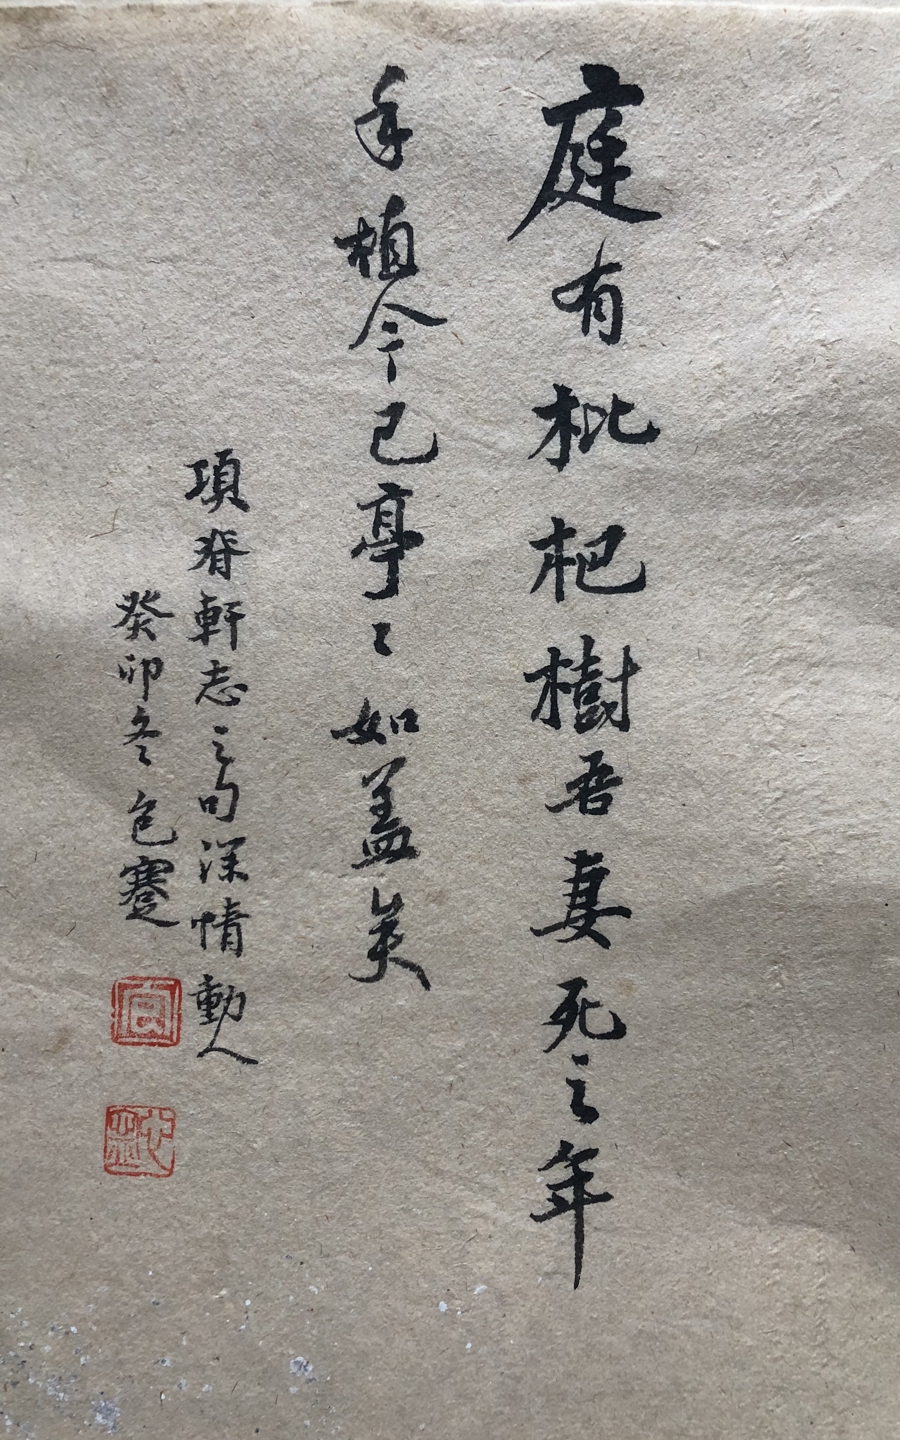 庭有枇杷樹吾妻死之年
手植今已亭〻如盖矣
項脊軒志之句深情動人
癸卯冬包蹇